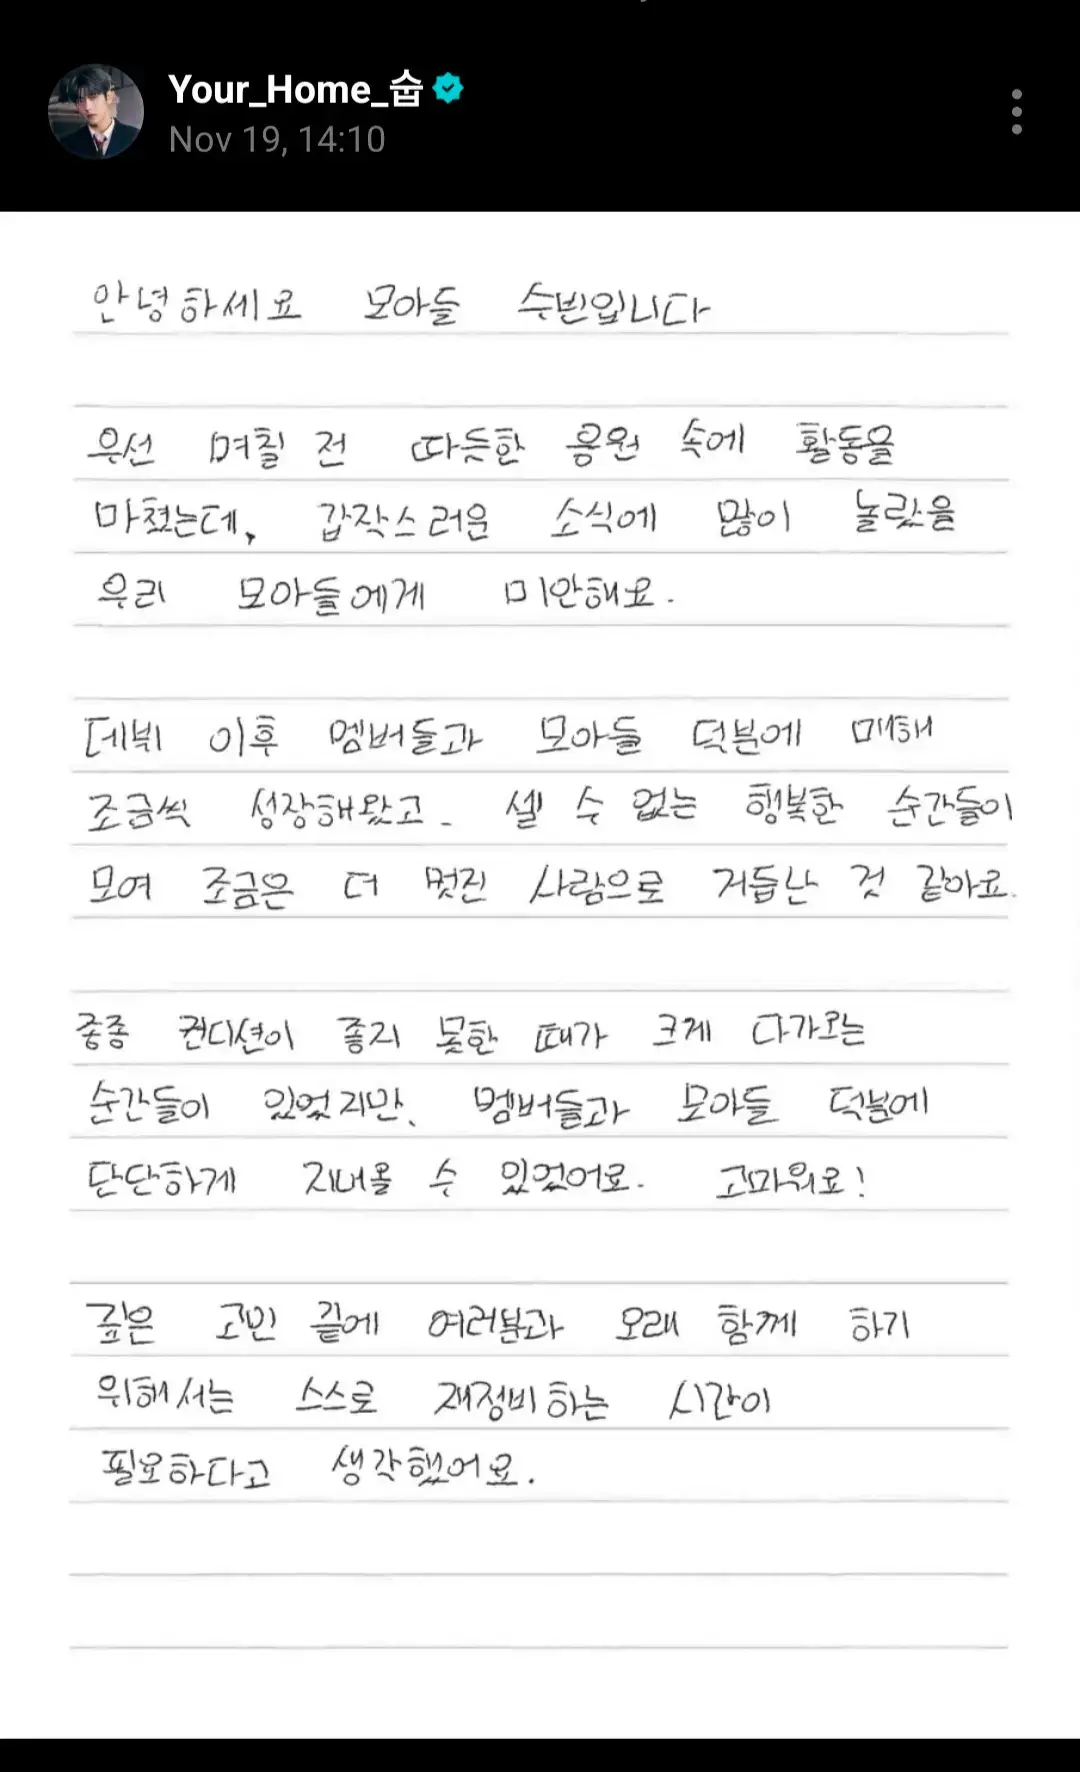 Your_Home_숩
Nov 19, 14:10
안녕하세요 모아들 수빈입니다
우선 며칠 전 따듯한 응원 속에 활동을
마쳤는데, 갑작스러운 소식에 많이 놀랐을
우리 모아들에게 미안해요.
데뷔 이후 멤버들과 모아들 덕분에 매해
조금씩 성장해왔고. 셀 수 없는 행복한 순간들이
모여 조금은 더 멋진 사람으로 거듭난 것 같아요.
종종 컨디션이 좋지 못한 때가 크게 다가오는
순간들이 있었지만, 멤버들과 모아들 덕분에
단단하게 지내올 수 있었어요. 고마워요!
깊은 고민 끝에 여러분과 오래 함께 하기
위해서는 스스로 재정비하는 시간이
필요하다고 생각했어요.